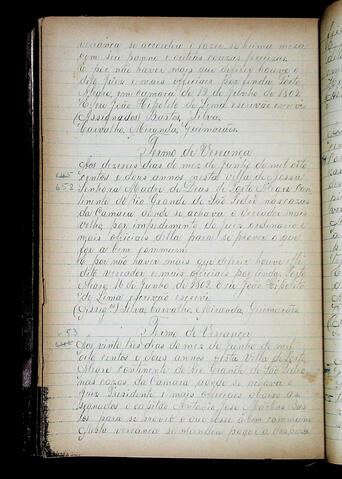 veriança se accordou o fazer se huma meza
com seu panno e outras couzas precizas.
E por não haver mais que deferir houve o
dito Juiz e mais officiais por finda Porto
Alegre, em camara de 12 de Junho de 1802
E eu João Hipolito de Lima escrivão escrevi
(Assignados) Bastos, Silva,
Carvalho, Miranda, Guimarães.
Termo de Veriança
Aos dezeseis dias do mez de Junho de mil oito
centos e dous annos nesta villa de Nossa
652 Senhora Madre de Deus de Porto Alegre con
tinente do Rio Grande de São Pedro nas cazas
da Camara donde se achava o Vereador mais
velho por impedimento do Juiz ordinario e
mais officiais della para se prover o que
for a bem commum.
E por não haver mais que deferir houve o
dito vereador e mais officiais por finda, Porto
Alegre 16 de Junho de 1802 e eu João Hipolito
de Lima escrivão escrevi
Silva, Carvalho, Miranda, Guimarães
653
Termo de Veriança
Aos vinte tres dias do mez de Junho de mil
oito centos e dous annos nesta Villa de Porto
Alegre continente do Rio Grande de São Pedro
nas cazas da Camara aonde se achava o
Juiz Prezidente e mais officiais abaixo as
signados o capitão Antonio José Martins Bas
tos para se prover o que fosse a bem commum
Nesta veriança se mandou pagar a despeza